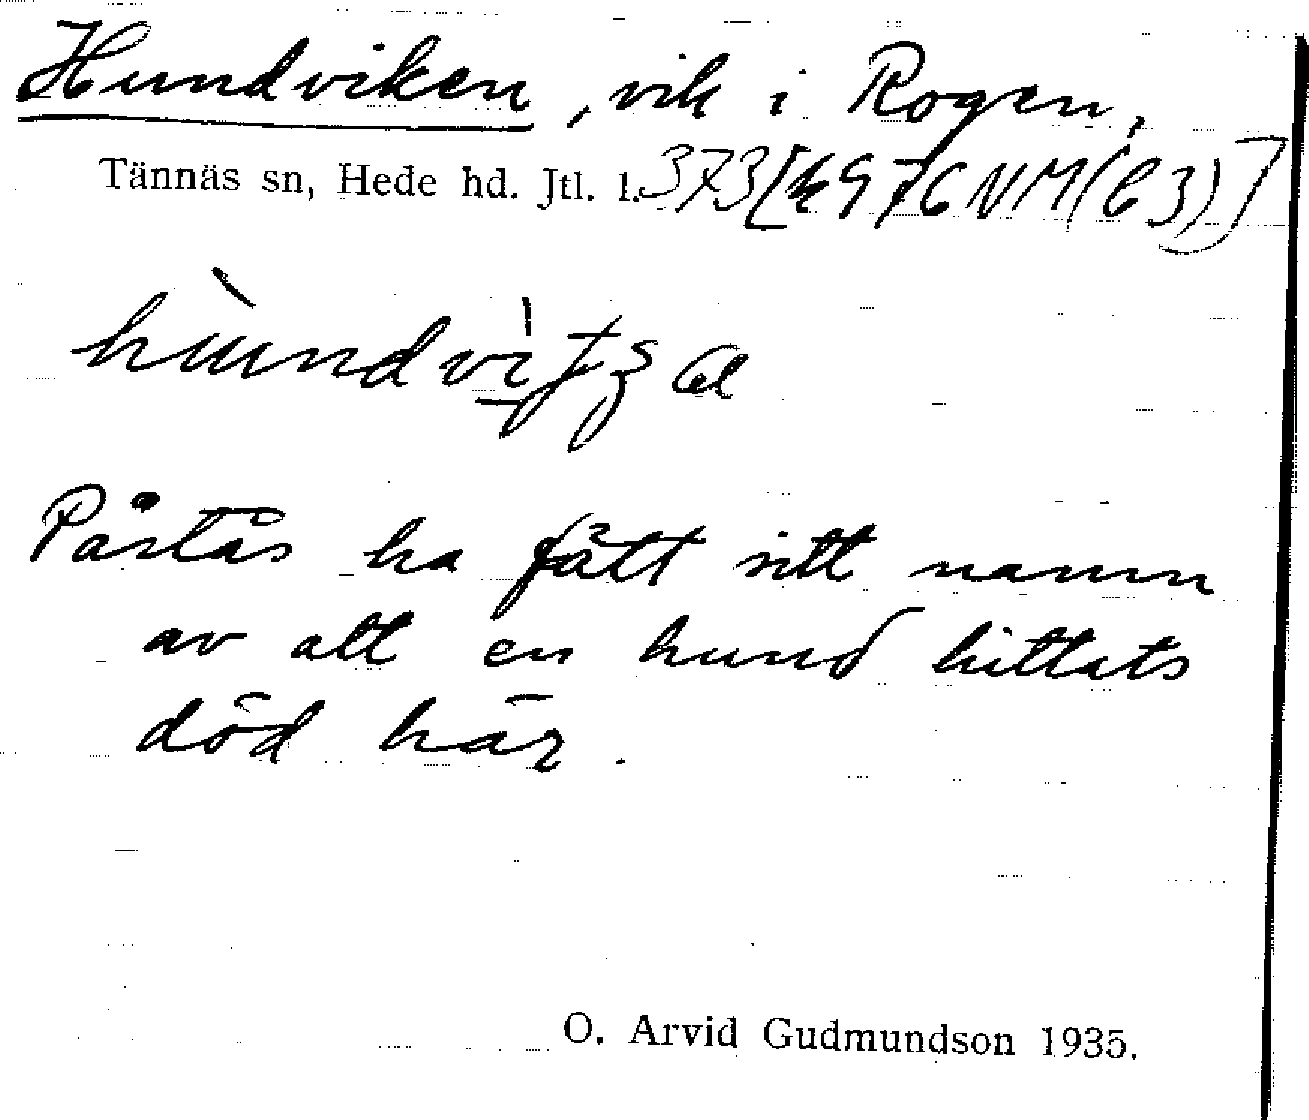 Hundviken, vik i Rogen,
Tännäs sn, Hede hd. Jtl. l. 373
Påstås ha fått sitt namn
av att en hund hittats
död här.
O. Arvid Gudmundson 1935.